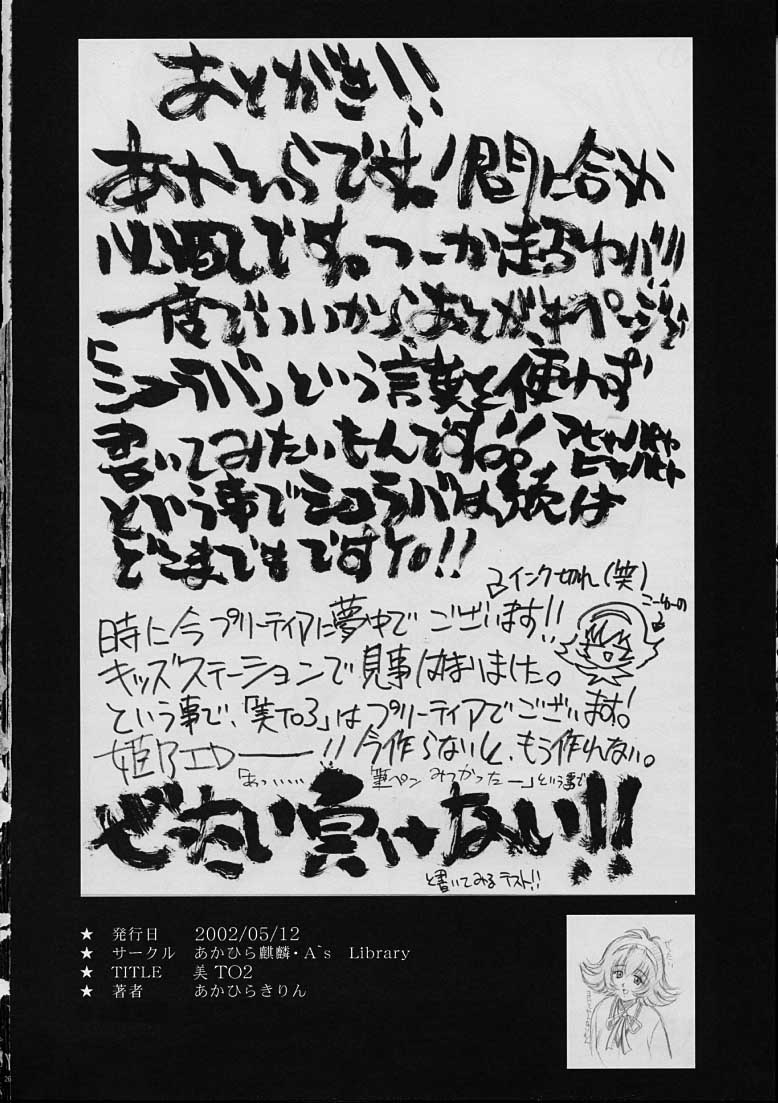 あとがき!!
あかひらです。！間に合うか
心配です。つーか超ヤバ!!
一度でいいから、あとがきページで
「シュラバ」という言葉を使わず
書いてみたいもんです!!
という事でシュラバは続くは
どこまでもですYO!!
インク切れ(笑)
時に今プリーティアに夢中でございます!!
キッズステーションで見事はまりました。
という事で、「美TO3」はプリーティアでございます!
姫 ー!!今作らないと、もう作れない。
「あっ、、、、、筆ペン みつかったー」という事で
ぜったい負けない!!
と書いてみるテスト!!
★ 発行日 2002/05/12
★ サークル あかひら麒麟・A`s Library
★ TITLE 美 TO2
★ 著者 あかひらきりん
26